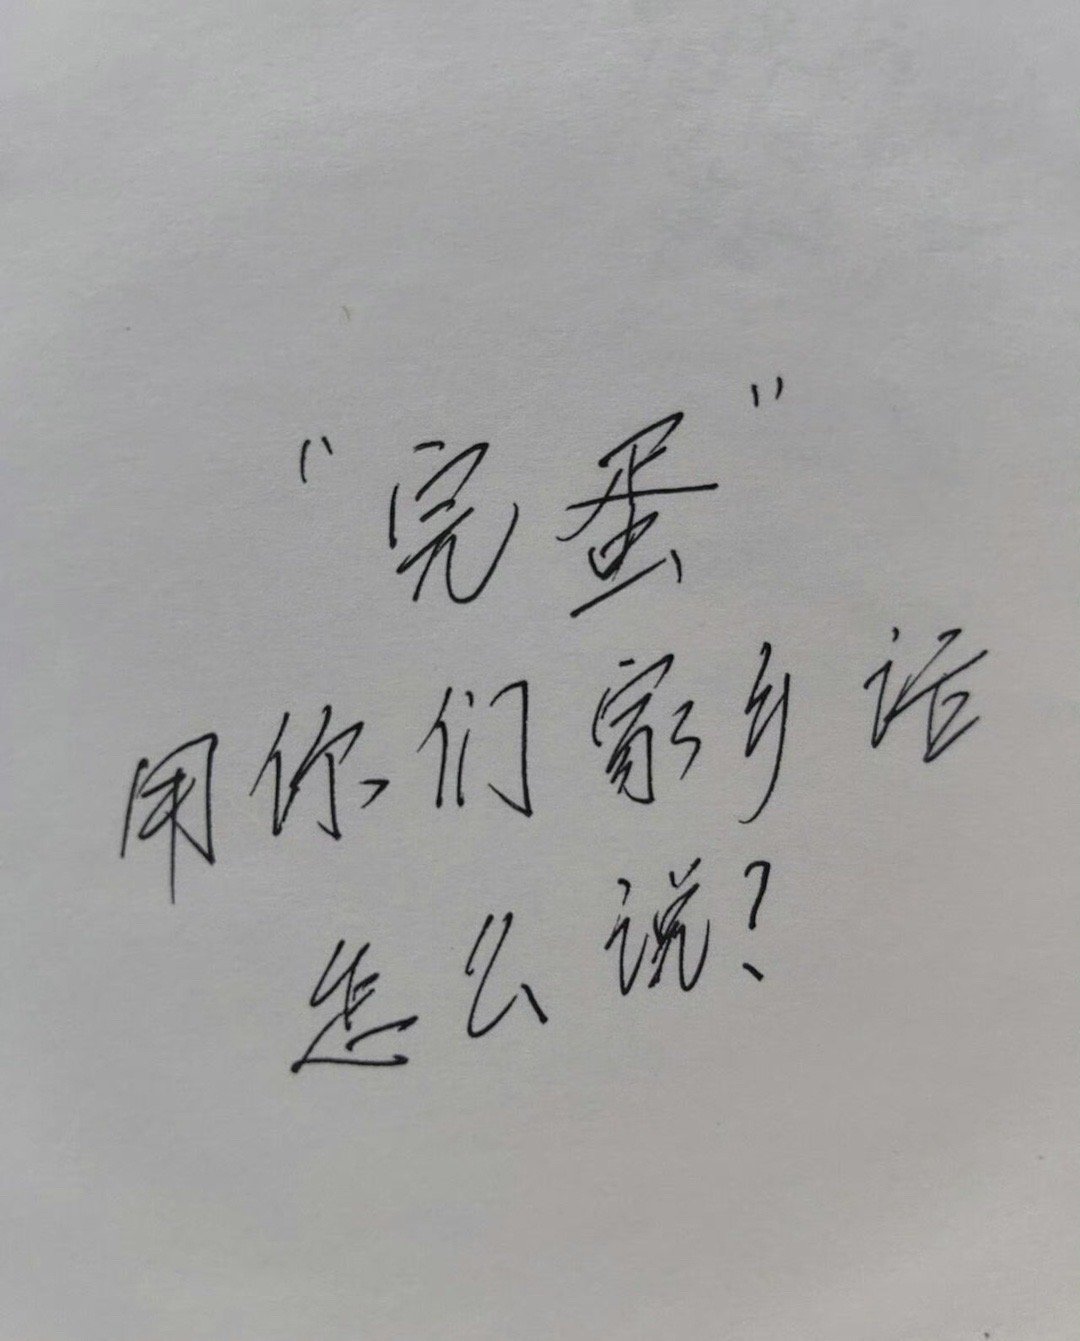 “完蛋”
用你们家乡话
怎么说？